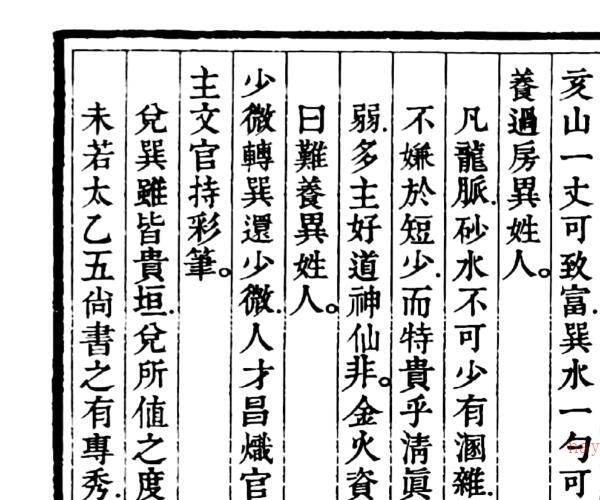 亥山一丈可致富.巽水一勺可
養過房異姓人。
凡龍脈.砂水不可少有溷雜.
不嫌於短少.而特貴乎淸眞
弱.多主好道神仙非。金火資
曰難養異姓人。
少微轉巽還少微.人才昌熾官
主文官持彩筆。
兌巽雖皆貴垣.兌所値之度
未若太乙五尙書之有專秀.